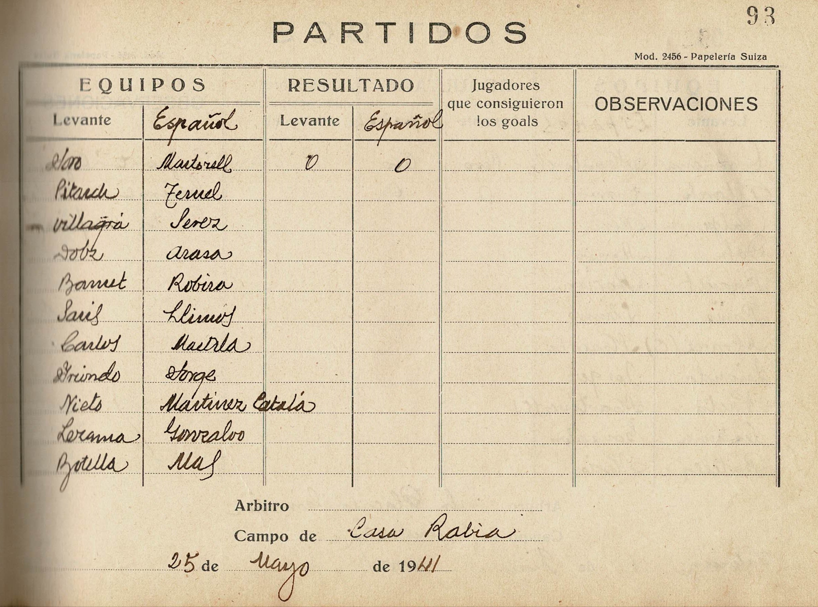 93
PARTIDOS
Mod. 2456 - Papelería Suiza
EQUIPOS RESULTADO Jugadores que consiguieron los goals OBSERVACIONES
Levante Español Levante Español
Martorell 0 0
Pitarch Teruel
Villagrá Perez
Dobz Arasa
Barnet Robira
Llimos
Carlos
Jorge
Nieto Martinez Catalá
Lerama Gonzalvo
Botella Mas
Arbitro
Campo de Casa Rabia
25 de Mayo de 1941